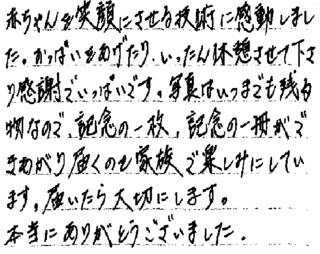 赤ちゃんを笑顔にさせる技術に感動しまし
た。かっぱいをあげたり、いったん休憩させて下さ
り感謝でいっぱいです。写真はいつまでも残る
物なので、記念の一枚、記念の一冊がで
きあがり届くのを家族で楽しみにしてい
ます。届いたら大切にします。
本当にありがとうございました.